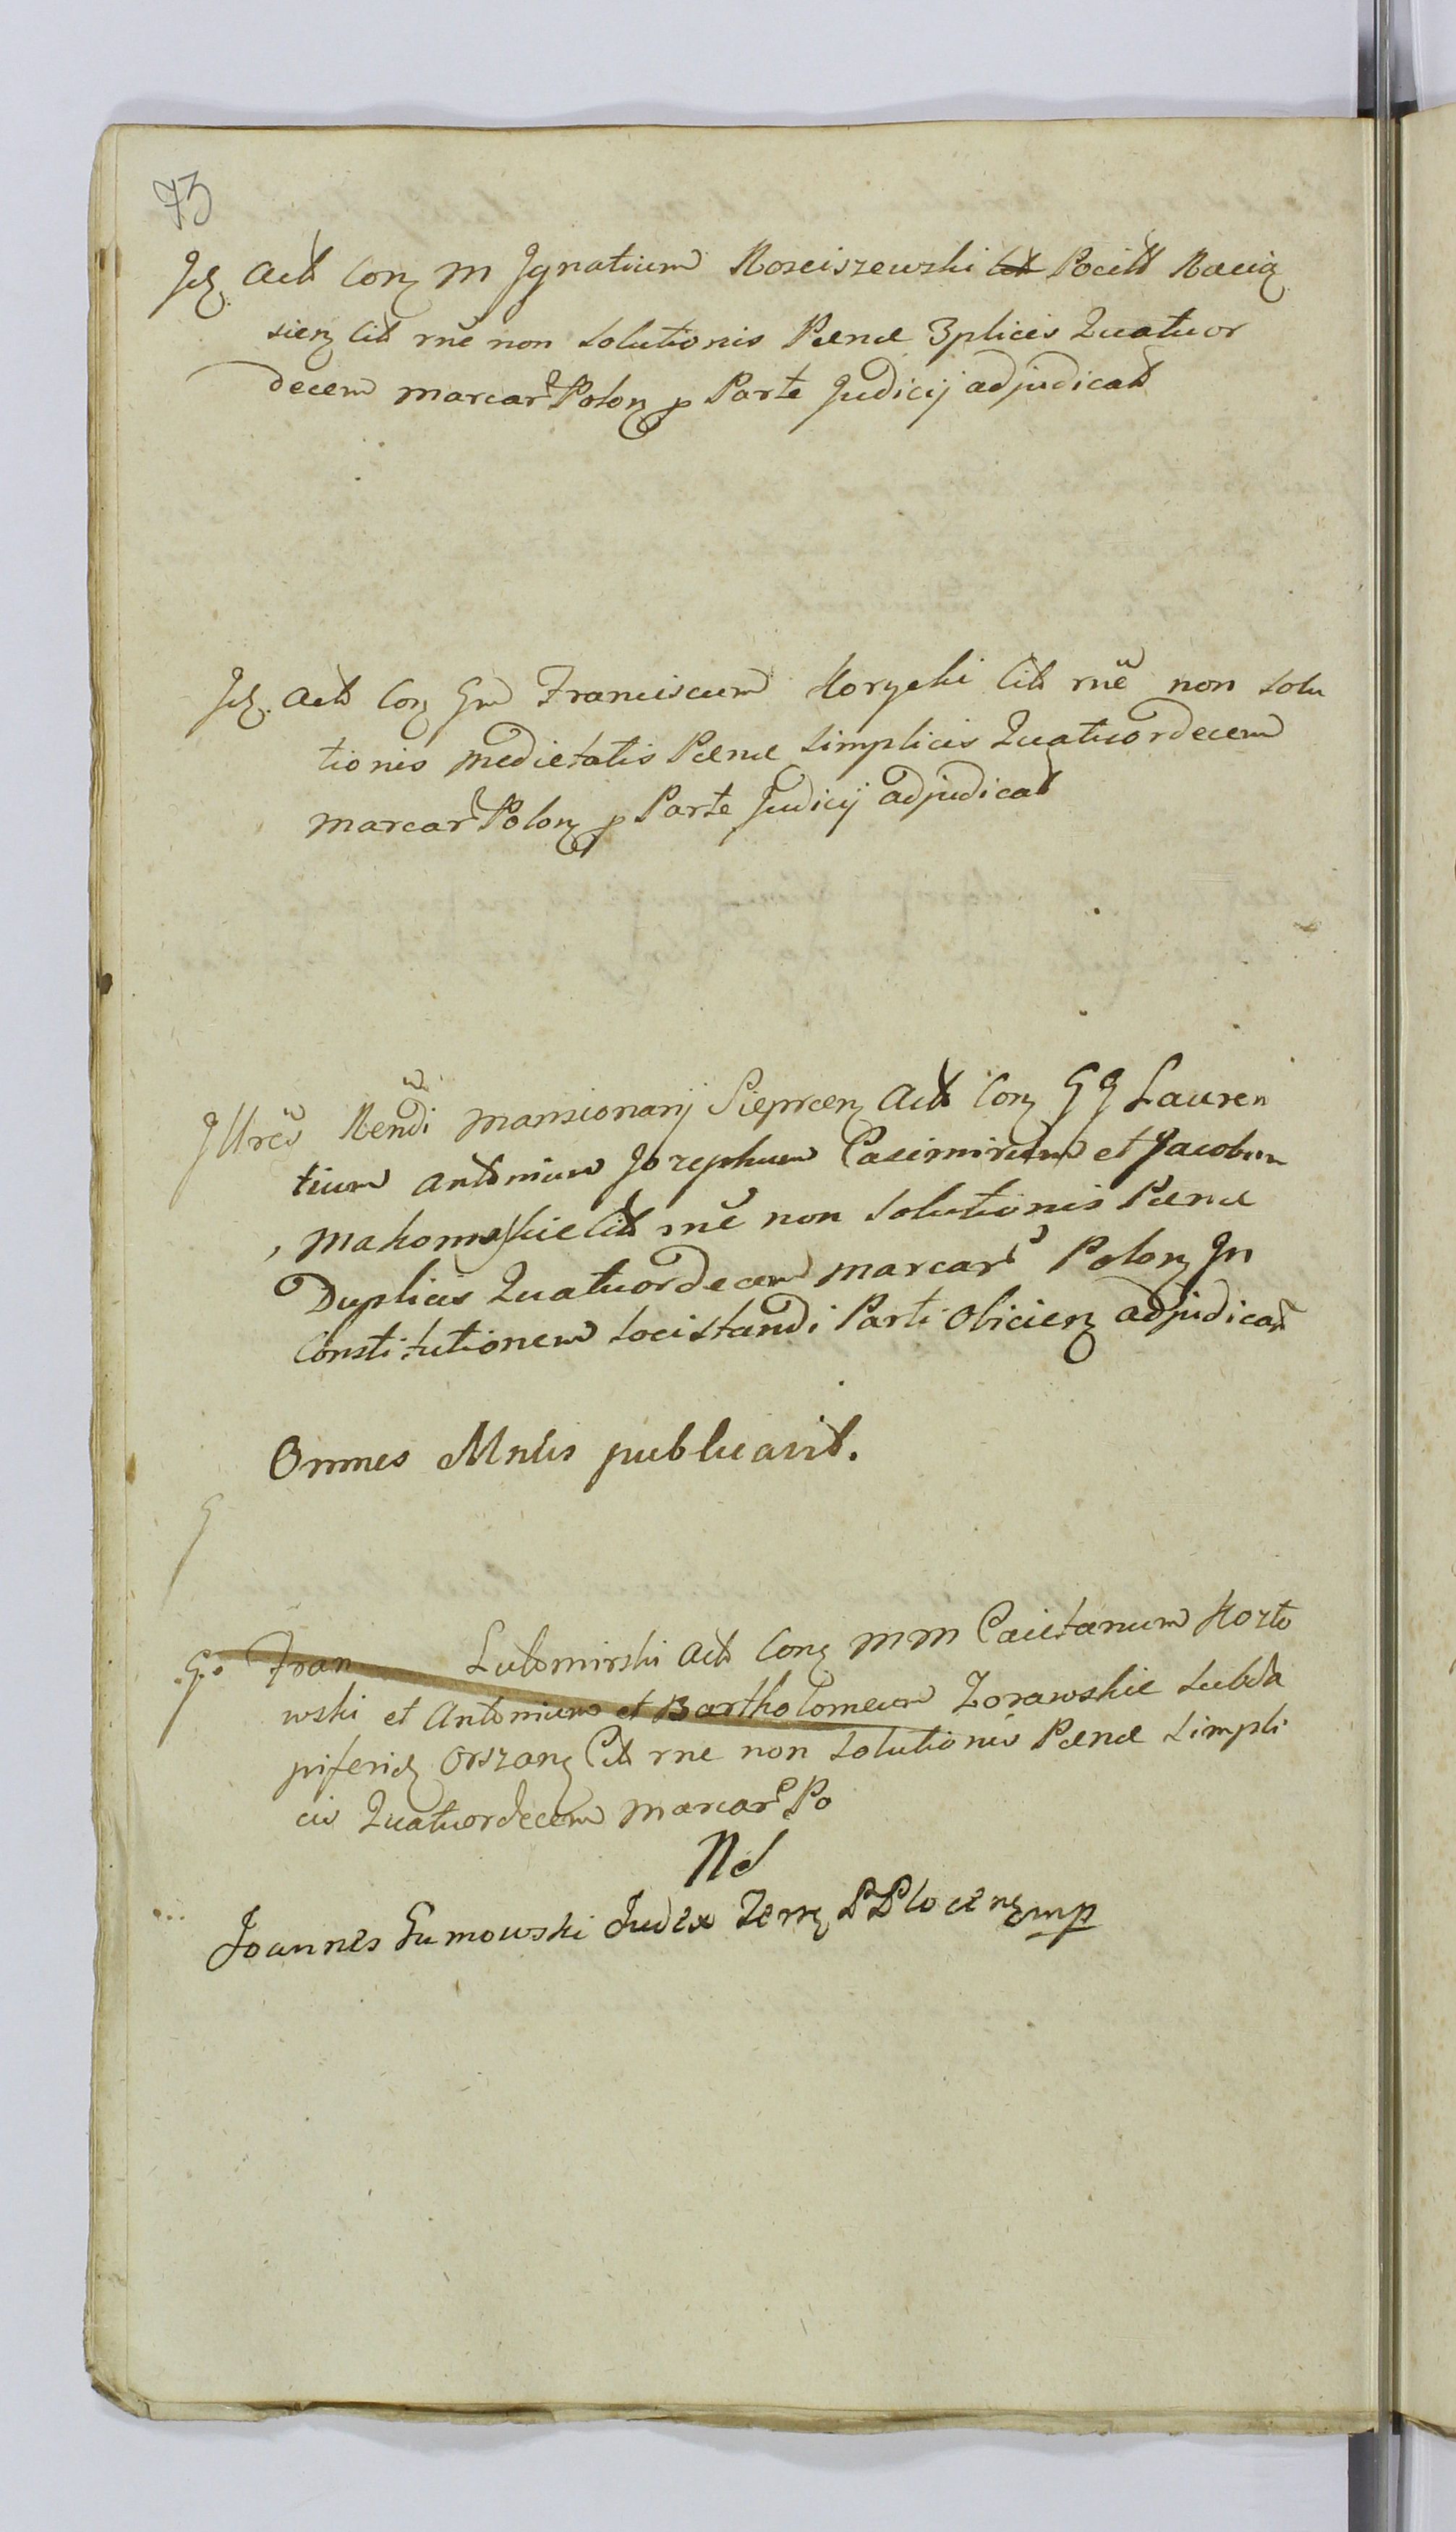 73
Id. Act Con M Ignatium Rosciszewski Cit Pocill Raciq
sien Cit rne non solutionis Pænæ 3plicis Quatuor
decem marcar Polon p Parte Judicij adjudicat
Id. Act Con Gm Franciscum Korycki Cit rne non solu
tionis medietatis Pænæ simplicis Quatuordecem
marcar Polon p Parte Judicij adjudicat
Illres Rendi mansionarij Sieprcen Act Con GG Lauren
tium Antonium Josephum Casimirum et Jacobum
Makomaskie Cit rne non solutionis Pænæ
Duplicis Quatuordecem marcar Polon In
Constitutionem locistandi Parti Obicien adjudicat
Omnes Mnlis publicavit.
G
G. Fran Lubomirski Act Con MM Caietanum Kozło
wski et Antonium et Bartholomeum Zorawskie Subda
piferid Orszan Cit rne non solutionis Pænæ simpli
cis Quatuordecem marcar Po
Nd
Joannes Gumowski Judex Terr PPlocen mp